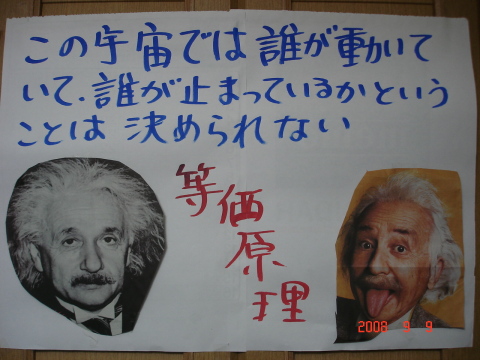 この宇宙では誰が動いて
いて、誰が止まっているかという
ことは決められない
等価原理
2008 9 9